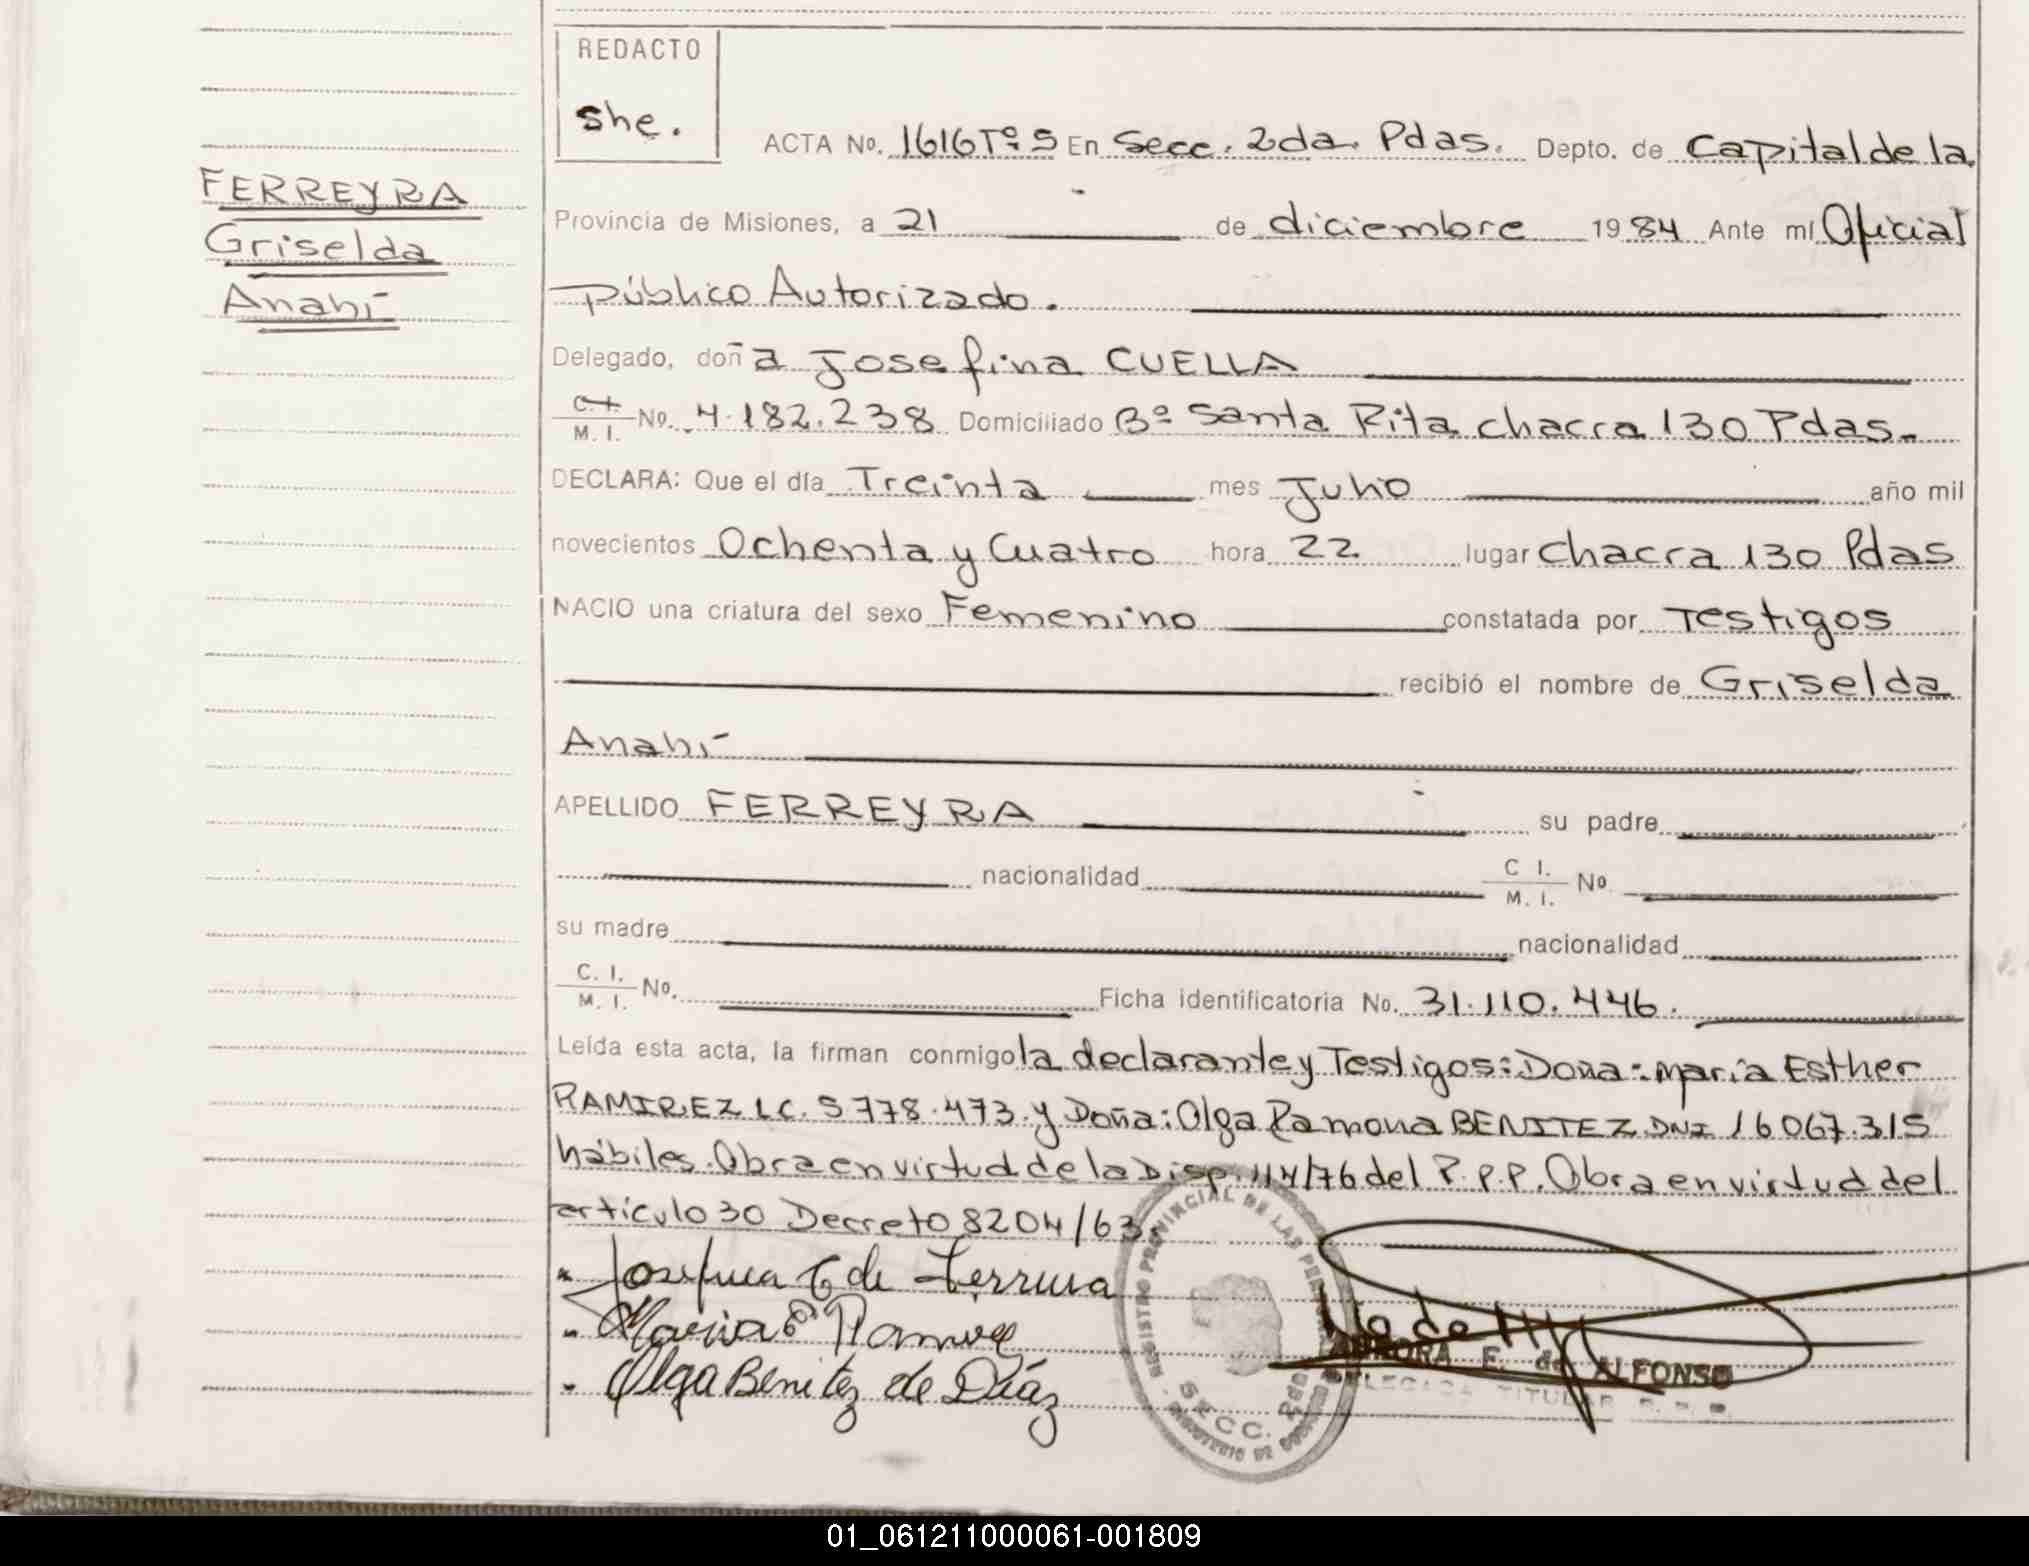 REDACTO
she.
ACTA No. 1616 Tº 5 En Secc. 2da. Pdas. Depto. de Capital de la
FERREYRA
Griselda
Anahí
Provincia de Misiones, a 21 de diciembre 1984 Ante mí Oficial
Público Autorizado.
Delegado, doña Josefina CUELLA
C. I. / M. I. No. 4.182.238 Domiciliado Bº Santa Rita chacra 130 Pdas.
DECLARA: Que el día Treinta mes Julio año mil
novecientos Ochenta y Cuatro hora 22 lugar Chacra 130 Pdas
NACIO una criatura del sexo Femenino constatada por Testigos
recibió el nombre de Griselda
Anahí
APELLIDO FERREYRA su padre
nacionalidad C I. / M. I. No
su madre nacionalidad
C. I. / M. I. No. Ficha identificatoria No. 31.110.446.
Leída esta acta, la firman conmigo la declarante y Testigos: Doña: María Esther
RAMIREZ LC. 5778.473. y Doña: Olga Ramona BENITEZ DNI 16067.315
hábiles. Obra en virtud de la Disp. 114/76 del P.P.P. Obra en virtud del
artículo 30 Decreto 8204/63.
Josefina C de Ferreira
Maria E. Ramirez
Olga Benitez de Díaz
REGISTRO PROVINCIAL DE LAS PERSONAS
SECC.
AURORA F. de ALFONSO
DELEGADA TITULAR
01_061211000061-001809